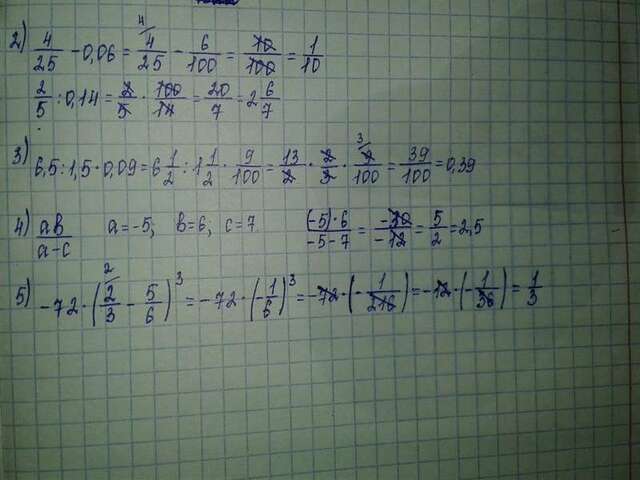 2) 4/25 - 0,06 = 4/25 - 6/100 = 10/100 = 1/10
2/5 : 0,14 = 2/5 · 100/14 = 20/7 = 2 6/7
3) 6,5 : 1,5 · 0,09 = 6 1/2 : 1 1/2 · 9/100 = 13/2 · 2/3 · 9/100 = 39/100 = 0,39
4) aв/a-c a = -5; в = 6; c = 7 (-5)·6/-5-7 = -30/-12 = 5/2 = 2,5
5) -72 · (2/3 - 5/6)³ = -72 · (-1/6)³ = -72 · (-1/216) = -12 · (-1/36) = 1/3